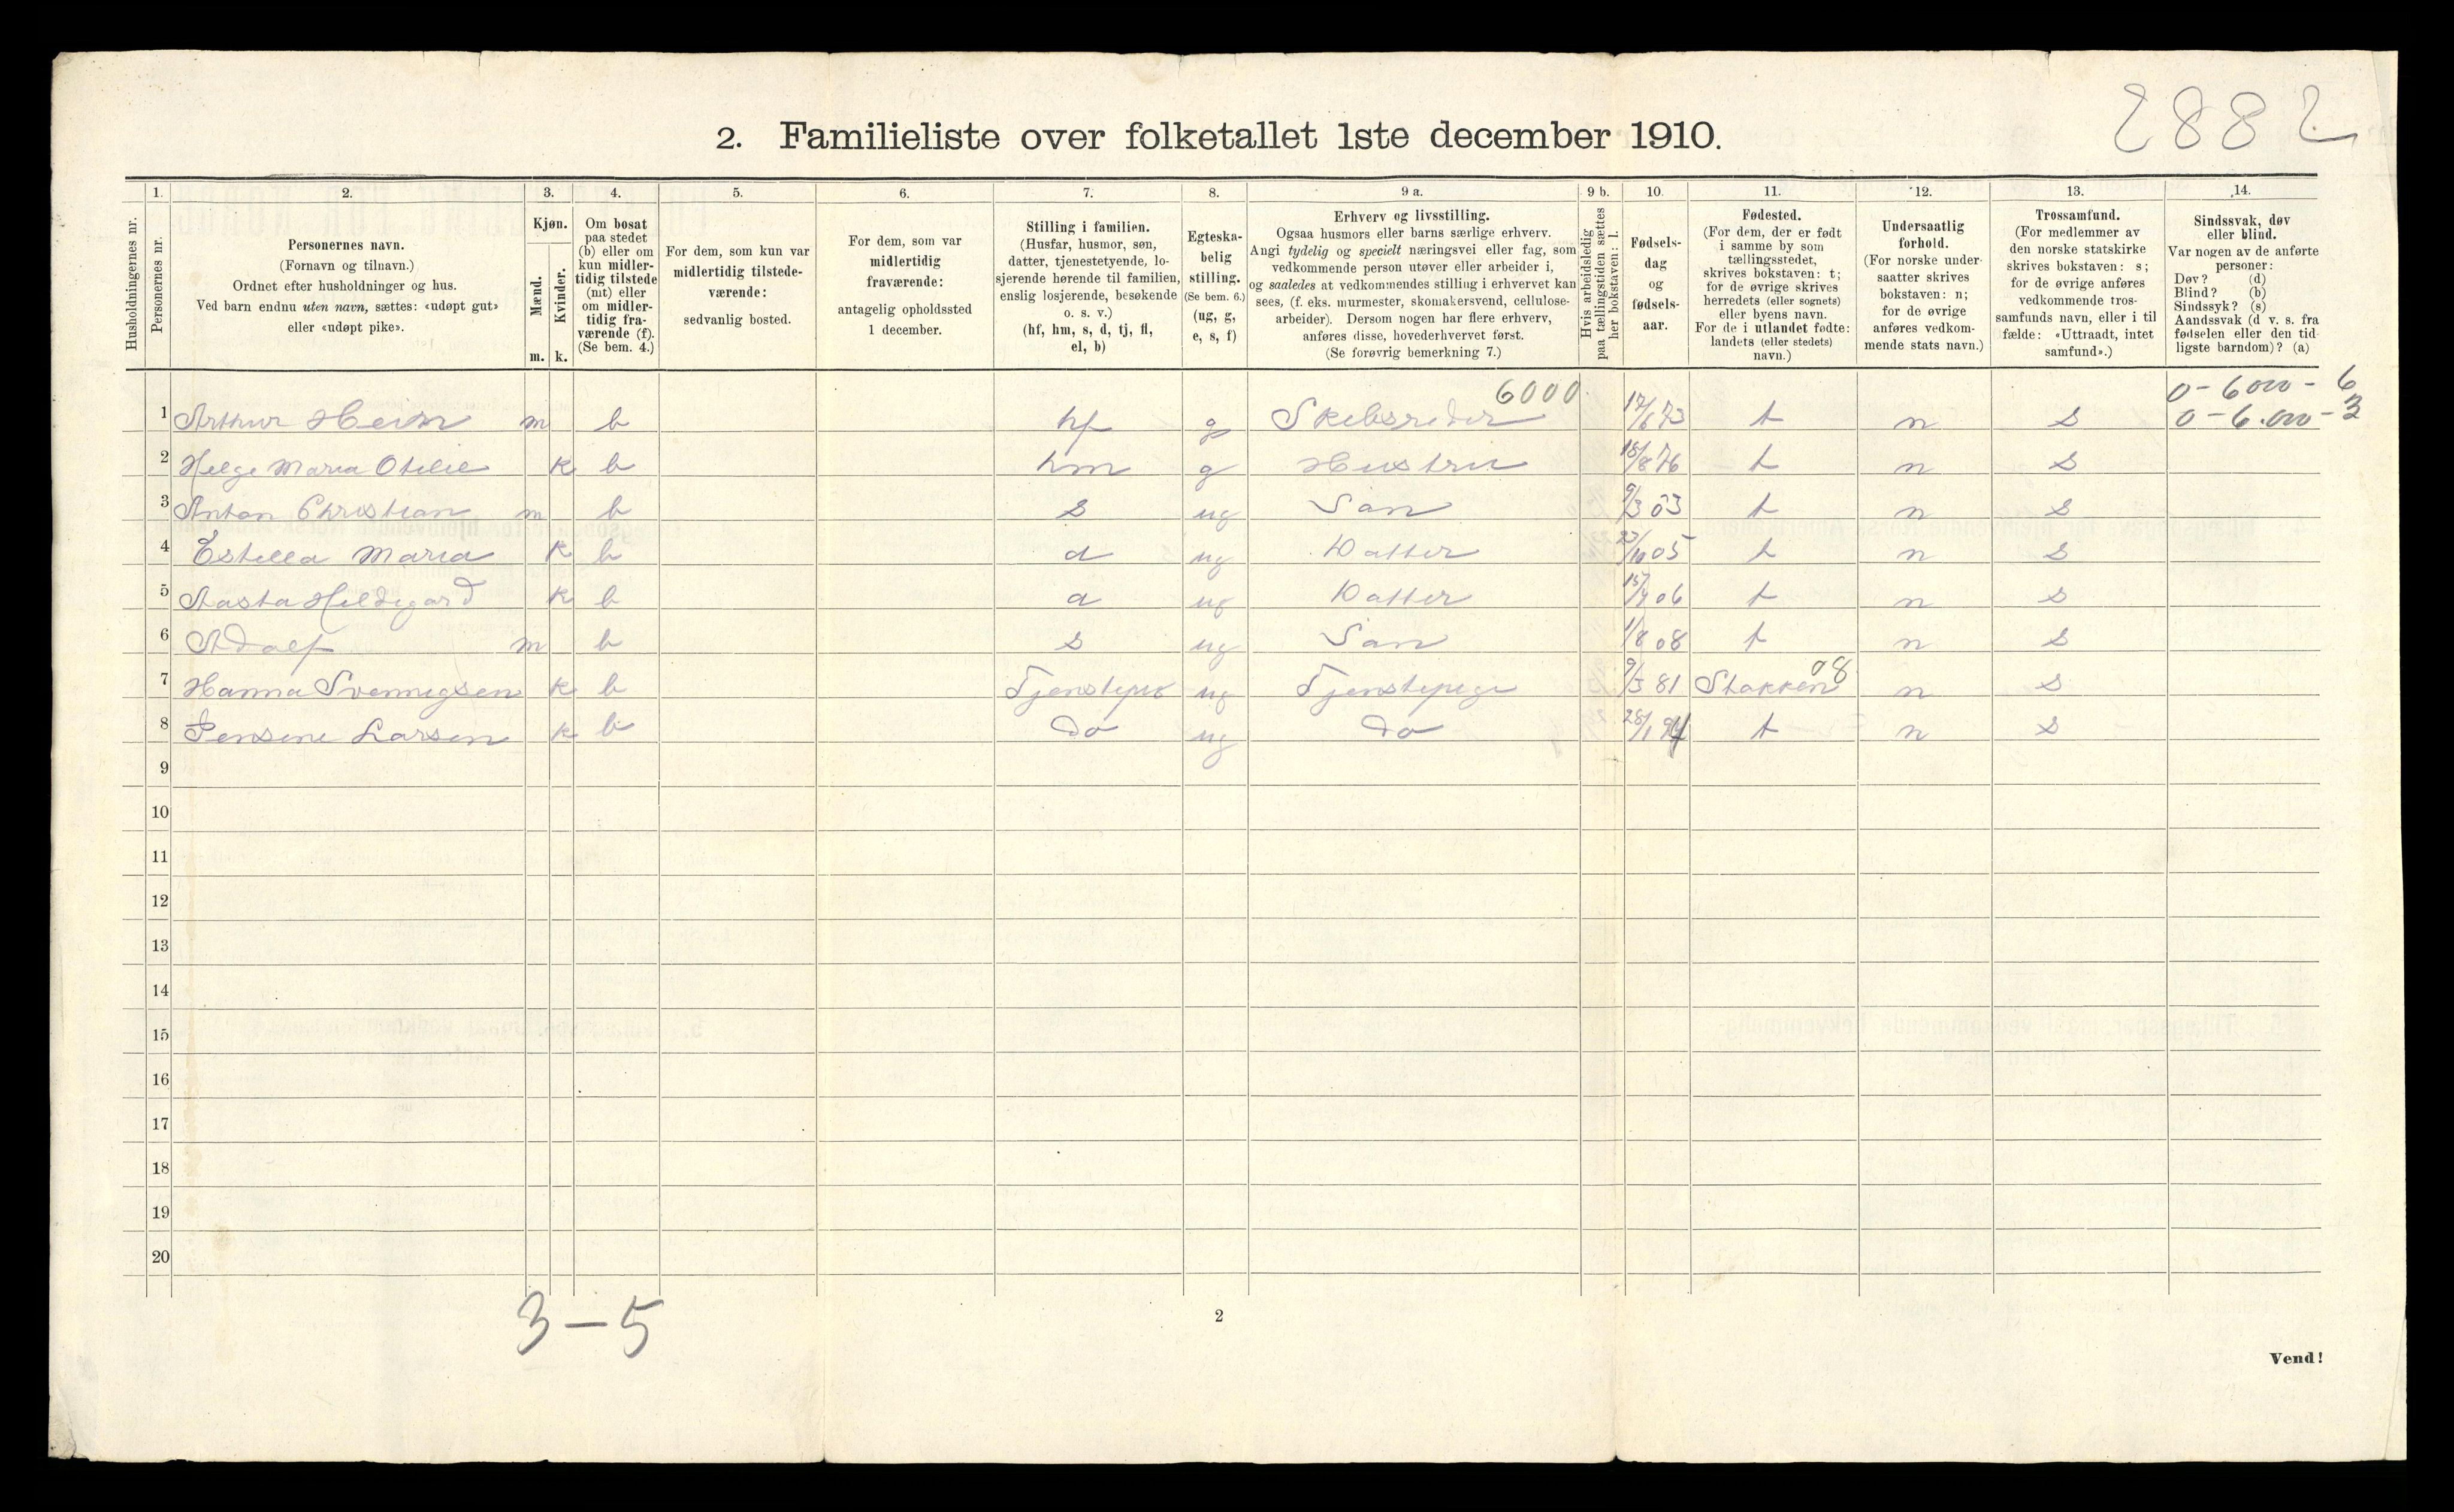 2882
2. Familieliste over folketallet 1ste december 1910.
Husholdningernes nr.
1. Personernes nr.
2. Personernes navn.
(Fornavn og tilnavn.)
Ordnet efter husholdninger og hus.
Ved barn endnu uten navn, sættes: «udøpt gut»
eller «udøpt pike».
3. Kjøn.
Mænd. Kvinder.
m. k.
4. Om bosat
paa stedet
(b) eller om
kun midler-
tidig tilstede
(mt) eller
om midler-
tidig fra-
værende (f).
(Se bem. 4.)
5. For dem, som kun var
midlertidig tilstede-
værende:
sedvanlig bosted.
6. For dem, som var
midlertidig
fraværende:
antagelig opholdssted
1 december.
7. Stilling i familien.
(Husfar, husmor, søn,
datter, tjenestetyende, lo-
sjerende hørende til familien,
enslig losjerende, besøkende
o. s. v.)
(hf, hm, s, d, tj, fl,
el, b)
8. Egteska-
belig
stilling.
(Se bem. 6.)
(ug, g,
e, s, f)
9 a. Erhverv og livsstilling.
Ogsaa husmors eller barns særlige erhverv.
Angi tydelig og specielt næringsvei eller fag, som
vedkommende person utøver eller arbeider i,
og saaledes at vedkommendes stilling i erhvervet kan
sees, (f. eks. murmester, skomakersvend, cellulose-
arbeider). Dersom nogen har flere erhverv,
anføres disse, hovederhvervet først.
(Se forøvrig bemerkning 7.)
9 b. Hvis arbeidsledig
paa tællingstiden sættes
her bokstaven: l.
10. Fødsels-
dag
og
fødsels-
aar.
11. Fødested.
(For dem, der er født
i samme by som
tællingsstedet,
skrives bokstaven: t;
for de øvrige skrives
herredets (eller sognets)
eller byens navn.
For de i utlandet fødte:
landets (eller stedets)
navn.)
12. Undersaatlig
forhold.
(For norske under-
saatter skrives
bokstaven: n;
for de øvrige
anføres vedkom-
mende stats navn.)
13. Trossamfund.
(For medlemmer av
den norske statskirke
skrives bokstaven: s;
for de øvrige anføres
vedkommende tros-
samfunds navn, eller i til
fælde: «Uttraadt, intet
samfund».)
14. Sindssvak, døv
eller blind.
Var nogen av de anførte
personer:
Døv? (d)
Blind? (b)
Sindssyk? (s)
Aandssvak (d v. s. fra
fødselen eller den tid-
ligste barndom)? (a)
6000 0-6000-6
1 Arthur m b hf g Skibsreder 17/6 73 t n s 0-6.000-3
2 Helge Maria Otilie k b hm g Hustru 18/8 76 t n s
3 Anton Christian m b s ug Søn 9/3 03 t n s
4 Estella Maria k b d ug Datter 23/10 05 t n s
5 Aasta Hildegard k b d ug Datter 06 t n s
6 Adolf m b s ug Søn 1/8 08 t n s
7 Hanna Svennigsen k b Tjenstepie ug Tjenstepige 9/3 81 Stokken 08 n s
8 Jensine Larsen k b do ug do 28/1 94 t n s
9
10
11
12
13
14
15
16
17
18
19
20
3-5
2
Vend!